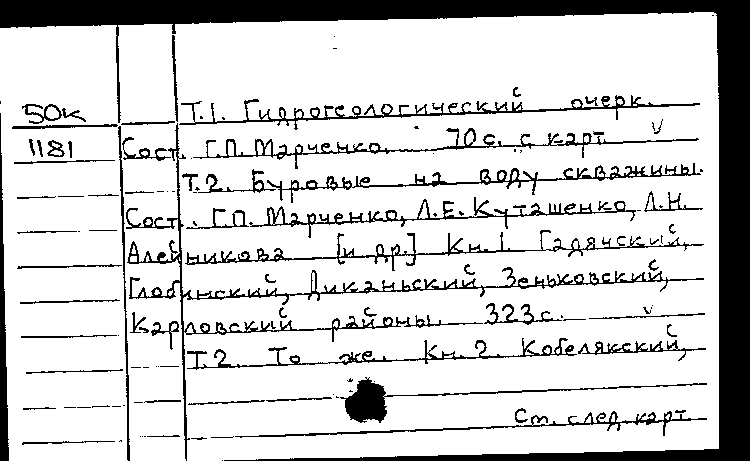 50к Т.1. Гидрогеологический очерк.
1181 Сост. Г.П. Марченко. 70с. с карт. v
Т.2. Буровые на воду скважины.
Сост. Г.П. Марченко, Л.Е. Куташенко, Л.Н.
Алейникова [и др.] Кн.1. Гадячский,
Глобинский, Диканьский, Зеньковский,
Карловский районы. 323с. v
Т.2. То же. Кн.2. Кобелякский,
См. след. карт.